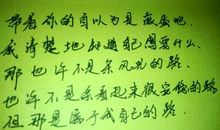 带着你的自以为是滚蛋吧.
我清楚地知道自己想要什么.
那也许不是条风光的路.
也许不是条看起来很安稳的路.
但那是属于我自己的路.